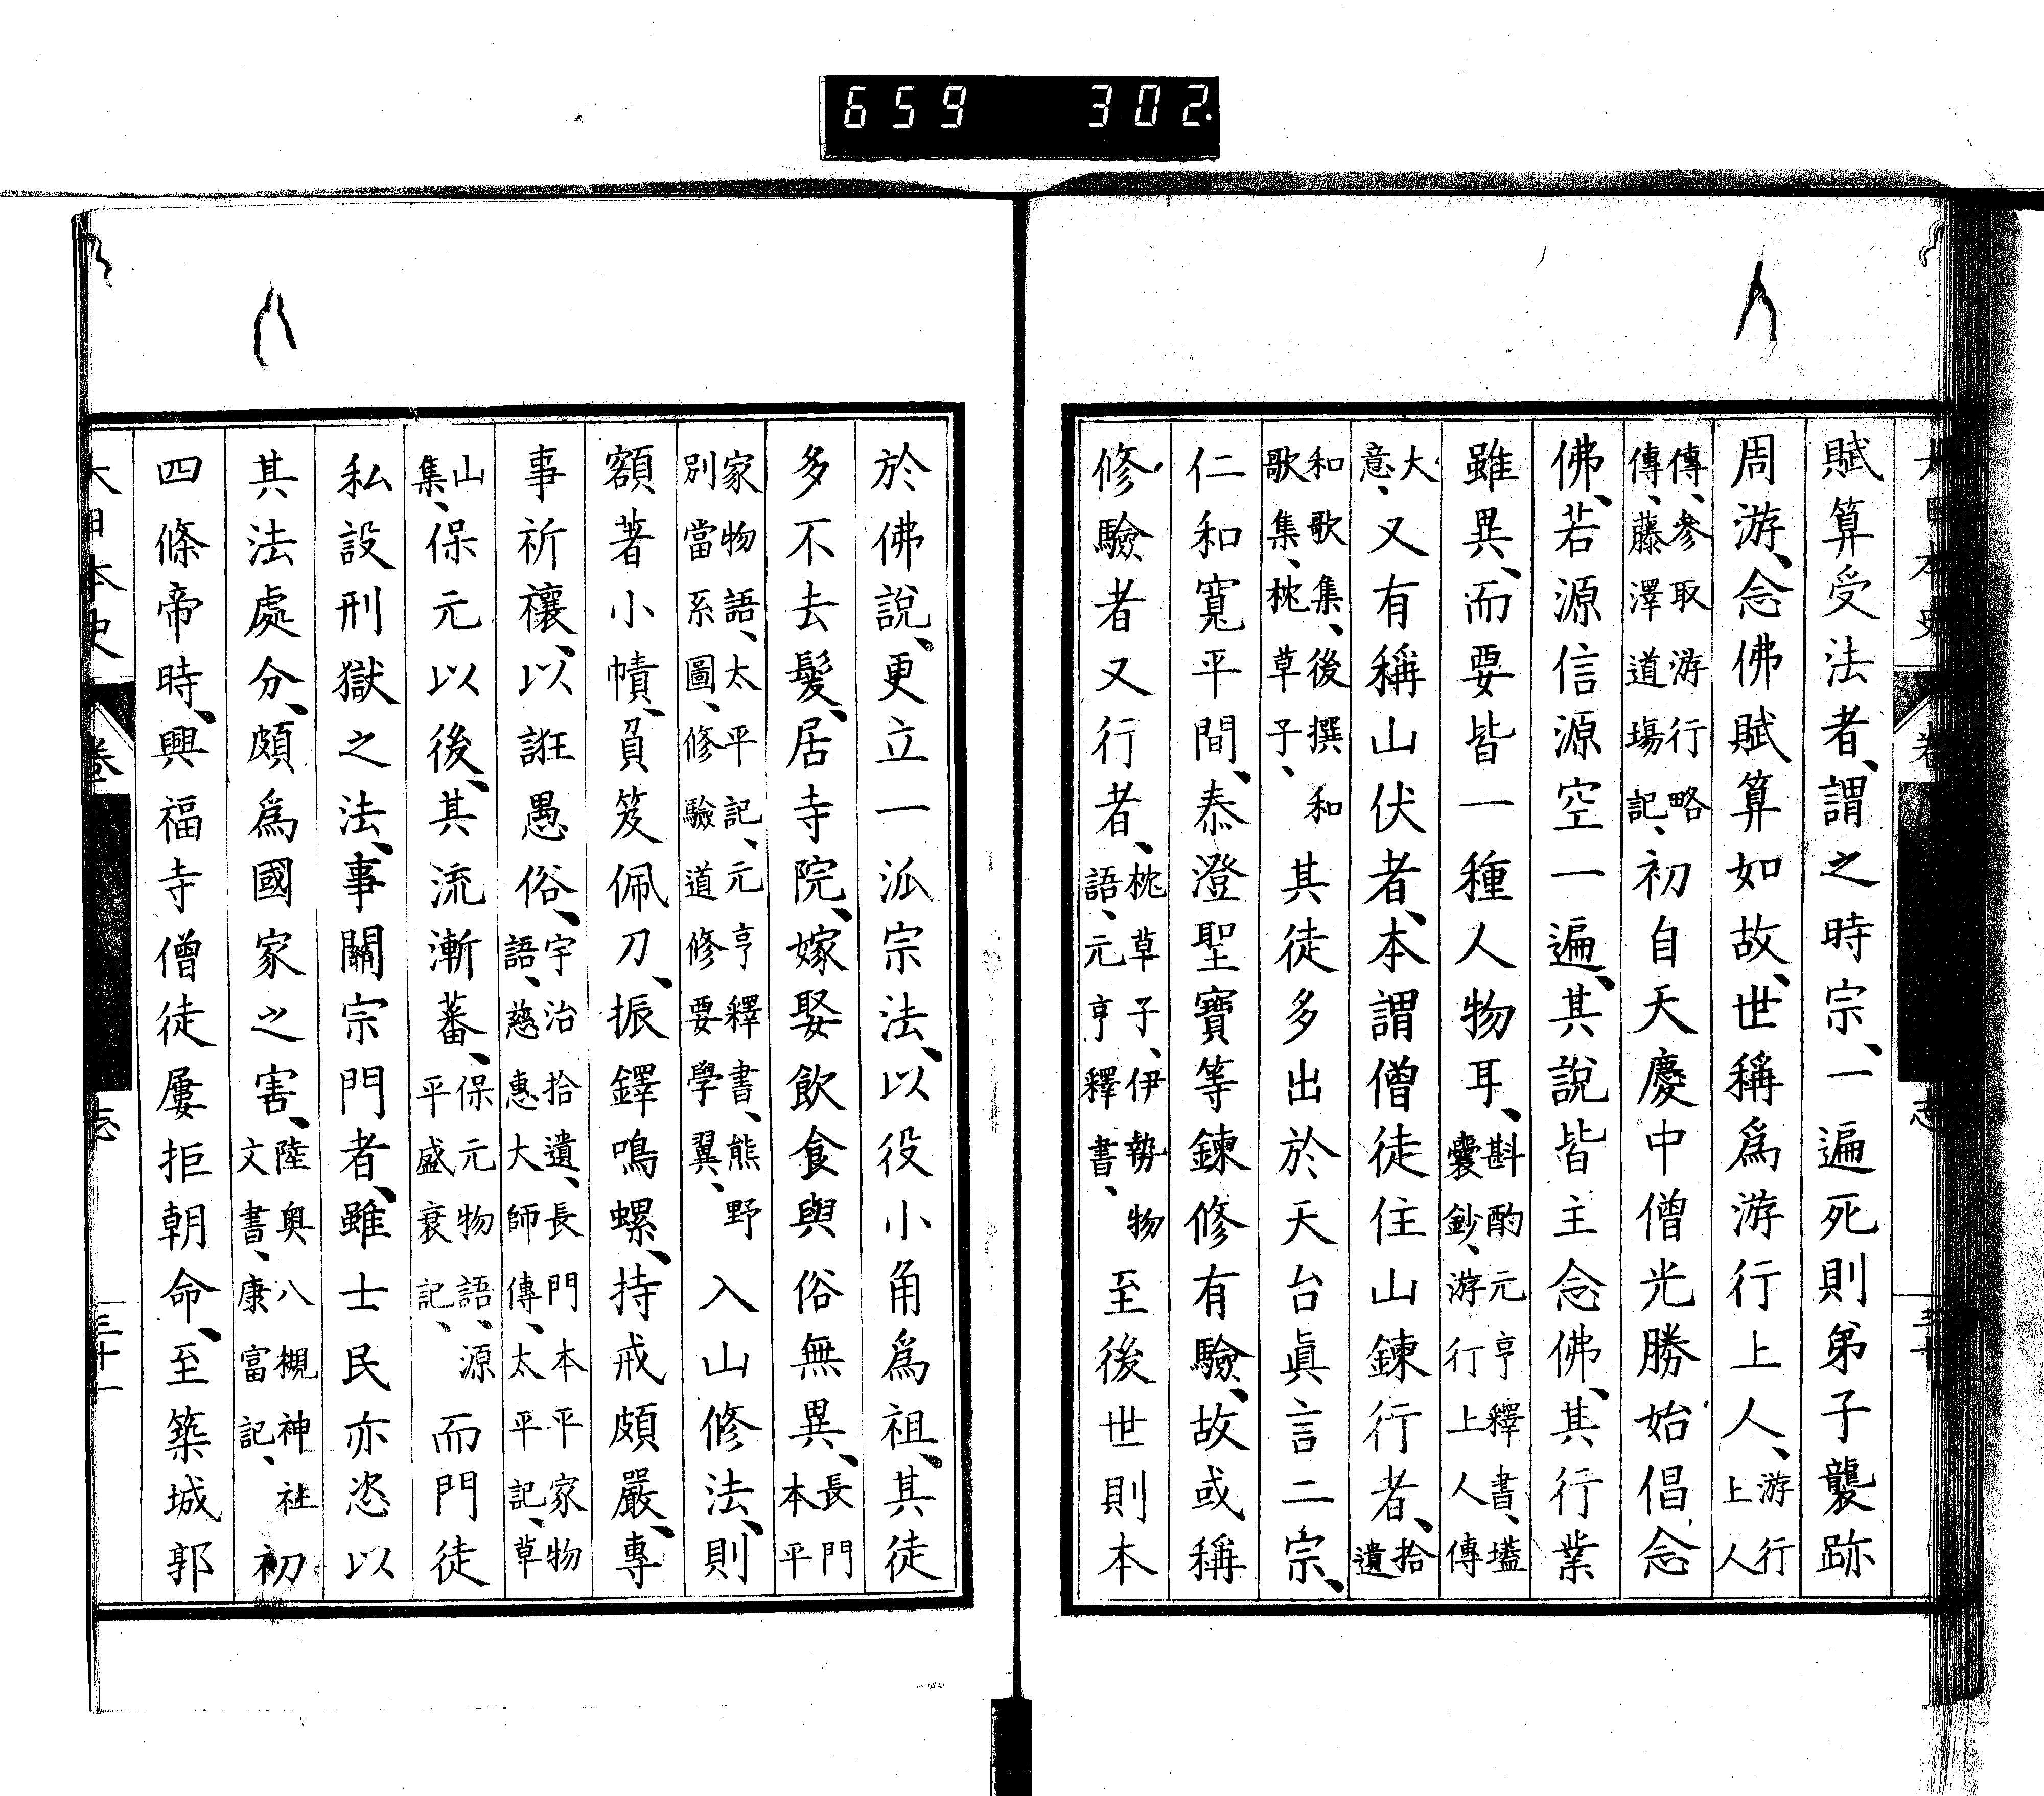 659 302.
賦算受法者、謂之時宗、一遍死則弟子襲跡
周游、念佛賦算如故、世稱爲游行上人、游行上人
傳、參取游行略傳、藤澤道場記、初自天慶中僧光勝始倡念
佛、若源信源空一遍、其說皆主念佛、其行業
雖異、而要皆一種人物耳、斟酌元亨釋書、壒囊鈔、游行上人傳
大意、又有稱山伏者、本謂僧徒住山鍊行者、拾遺
和歌集、後撰和歌集、枕草子、其徒多出於天台眞言二宗、
仁和寬平間、泰澄聖寶等鍊修有驗、故或稱
修驗者又行者、枕草子、伊勢物語、元亨釋書、至後世則本
於佛說、更立一派宗法、以役小角爲祖、其徒
多不去髮、居寺院、嫁娶飲食與俗無異、長門本平
家物語、太平記、元亨釋書、熊野別當系圖、修驗道修要學翼、入山修法、則
額著小幘、負笈佩刀、振鐸鳴螺、持戒頗嚴、專
事祈禳、以誑愚俗、宇治拾遺、長門本平家物語、慈惠大師傳、太平記、草
山集、保元以後、其流漸蕃、保元物語、源平盛衰記、而門徒
私設刑獄之法、事關宗門者、雖士民亦恣以
其法處分、頗爲國家之害、陸奥八槻神社文書、康富記、初
四條帝時、興福寺僧徒屢拒朝命、至築城郭
大日本史 卷 志 三十一